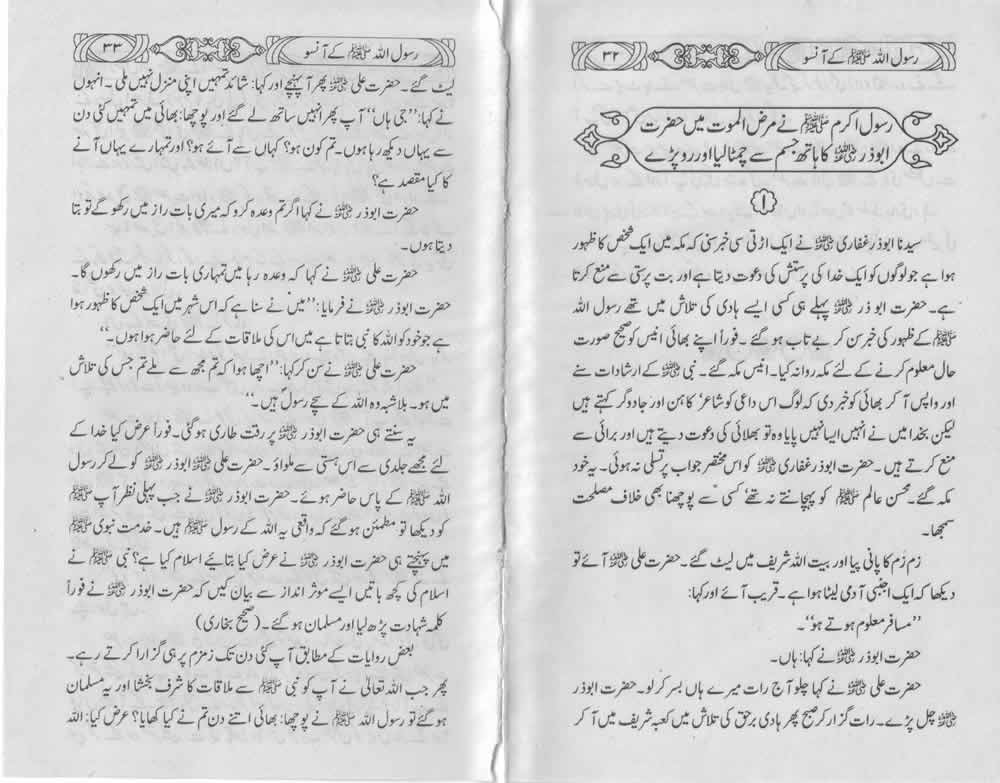 رسول اللہ ﷺ کے آنسو ۳۲
رسول اکرم ﷺ نے مرض الموت میں حضرت
ابوذر ؓ کا ہاتھ جسم سے چمٹا لیا اور رو پڑے
۱
سیدنا ابوذر غفاری ؓ نے ایک اڑتی سی خبر سنی کہ مکہ میں ایک شخص کا ظہور
ہوا ہے جو لوگوں کو ایک خدا کی پرستش کی دعوت دیتا ہے اور بت پرستی سے منع کرتا
ہے۔ حضرت ابو ذر ؓ پہلے ہی کسی ایسے ہادی کی تلاش میں تھے رسول اللہ
ﷺ کے ظہور کی خبر سن کر بے تاب ہو گئے۔ فوراً اپنے بھائی انیس کو صحیح صورت
حال معلوم کرنے کے لئے مکہ روانہ کیا۔ انیس مکہ گئے۔ نبی ﷺ کے ارشادات سنے
اور واپس آ کر بھائی کو خبر دی کہ لوگ اس داعی کو شاعر‘ کاہن اور جادوگر کہتے ہیں
لیکن بخدا میں نے انہیں ایسا نہیں پایا وہ تو بھلائی کی دعوت دیتے ہیں اور برائی سے
منع کرتے ہیں۔ حضرت ابوذر غفاری ؓ کو اس مختصر جواب پر تسلی نہ ہوئی۔ یہ خود
مکہ گئے۔ محسن عالم ﷺ کو پہچانتے نہ تھے‘ کسی سے پوچھنا بھی خلاف مصلحت
سمجھا۔
زم زم کا پانی پیا اور بیت اللہ شریف میں لیٹ گئے۔ حضرت علی ؓ آئے تو
دیکھا کہ ایک اجنبی آدمی لیٹا ہوا ہے۔ قریب آئے اور کہا:
’’مسافر معلوم ہوتے ہو‘‘۔
حضرت ابوذر ؓ نے کہا: ہاں۔
حضرت علی ؓ نے کہا چلو آج رات میرے ہاں بسر کر لو۔ حضرت ابوذر
ؓ چل پڑے۔ رات گزار کر صبح پھر ہادی برحق کی تلاش میں کعبہ شریف میں آ کر
رسول اللہ ﷺ کے آنسو ۳۳
لیٹ گئے۔ حضرت علی ؓ پھر آ پہنچے اور کہا: شائد تمہیں اپنی منزل نہیں ملی۔ انہوں
نے کہا: ’’جی ہاں‘‘ آپ پھر انہیں ساتھ لے گئے اور پوچھا: بھائی میں تمہیں کئی دن
سے یہاں دیکھ رہا ہوں۔ تم کون ہو؟ کہاں سے آئے ہو؟ اور تمہارے یہاں آنے
کا کیا مقصد ہے؟
حضرت ابوذر ؓ نے کہا اگر تم وعدہ کرو کہ میری بات راز میں رکھو گے تو بتا
دیتا ہوں۔
حضرت علی ؓ نے کہا کہ وعدہ رہا میں تمہاری بات راز میں رکھوں گا۔
حضرت ابوذر ؓ نے فرمایا: ’’میں نے سنا ہے کہ اس شہر میں ایک شخص کا ظہور ہوا
ہے جو خود کو اللہ کا نبی بتاتا ہے میں اس کی ملاقات کے لئے حاضر ہوا ہوں۔‘‘
حضرت علی ؓ نے سن کر کہا: ’’اچھا ہوا کہ تم مجھ سے ملے تم جس کی تلاش
میں ہو۔ بلاشبہ وہ اللہ کے سچے رسولؐ ہیں۔‘‘
یہ سنتے ہی حضرت ابوذر ؓ پر رقت طاری ہو گئی۔ فوراً عرض کیا خدا کے
لئے مجھے جلدی سے اس ہستی سے ملواؤ۔ حضرت علی ؓ ابوذر ؓ کو لے کر رسول
اللہ ﷺ کے پاس حاضر ہوئے۔ حضرت ابوذر ؓ نے جب پہلی نظر آپ ﷺ
کو دیکھا تو مطمئن ہو گئے کہ واقعی یہ اللہ کے رسول ﷺ ہیں۔ خدمت نبوی ﷺ
میں پہنچتے ہی حضرت ابوذر ؓ نے عرض کیا بتائیے اسلام کیا ہے؟ نبی ﷺ نے
اسلام کی کچھ باتیں ایسے موثر انداز سے بیان کیں کہ حضرت ابوذر ؓ نے فوراً
کلمہ شہادت پڑھ لیا اور مسلمان ہو گئے۔ (صحیح بخاری)
بعض روایات کے مطابق آپ کئی دن تک زمزم پر ہی گزارا کرتے رہے۔
پھر جب اللہ تعالیٰ نے آپ کو نبی ﷺ سے ملاقات کا شرف بخشا اور یہ مسلمان
ہو گئے تو رسول اللہ ﷺ نے پوچھا: بھائی اتنے دن تم نے کیا کھایا؟ عرض کیا: اللہ